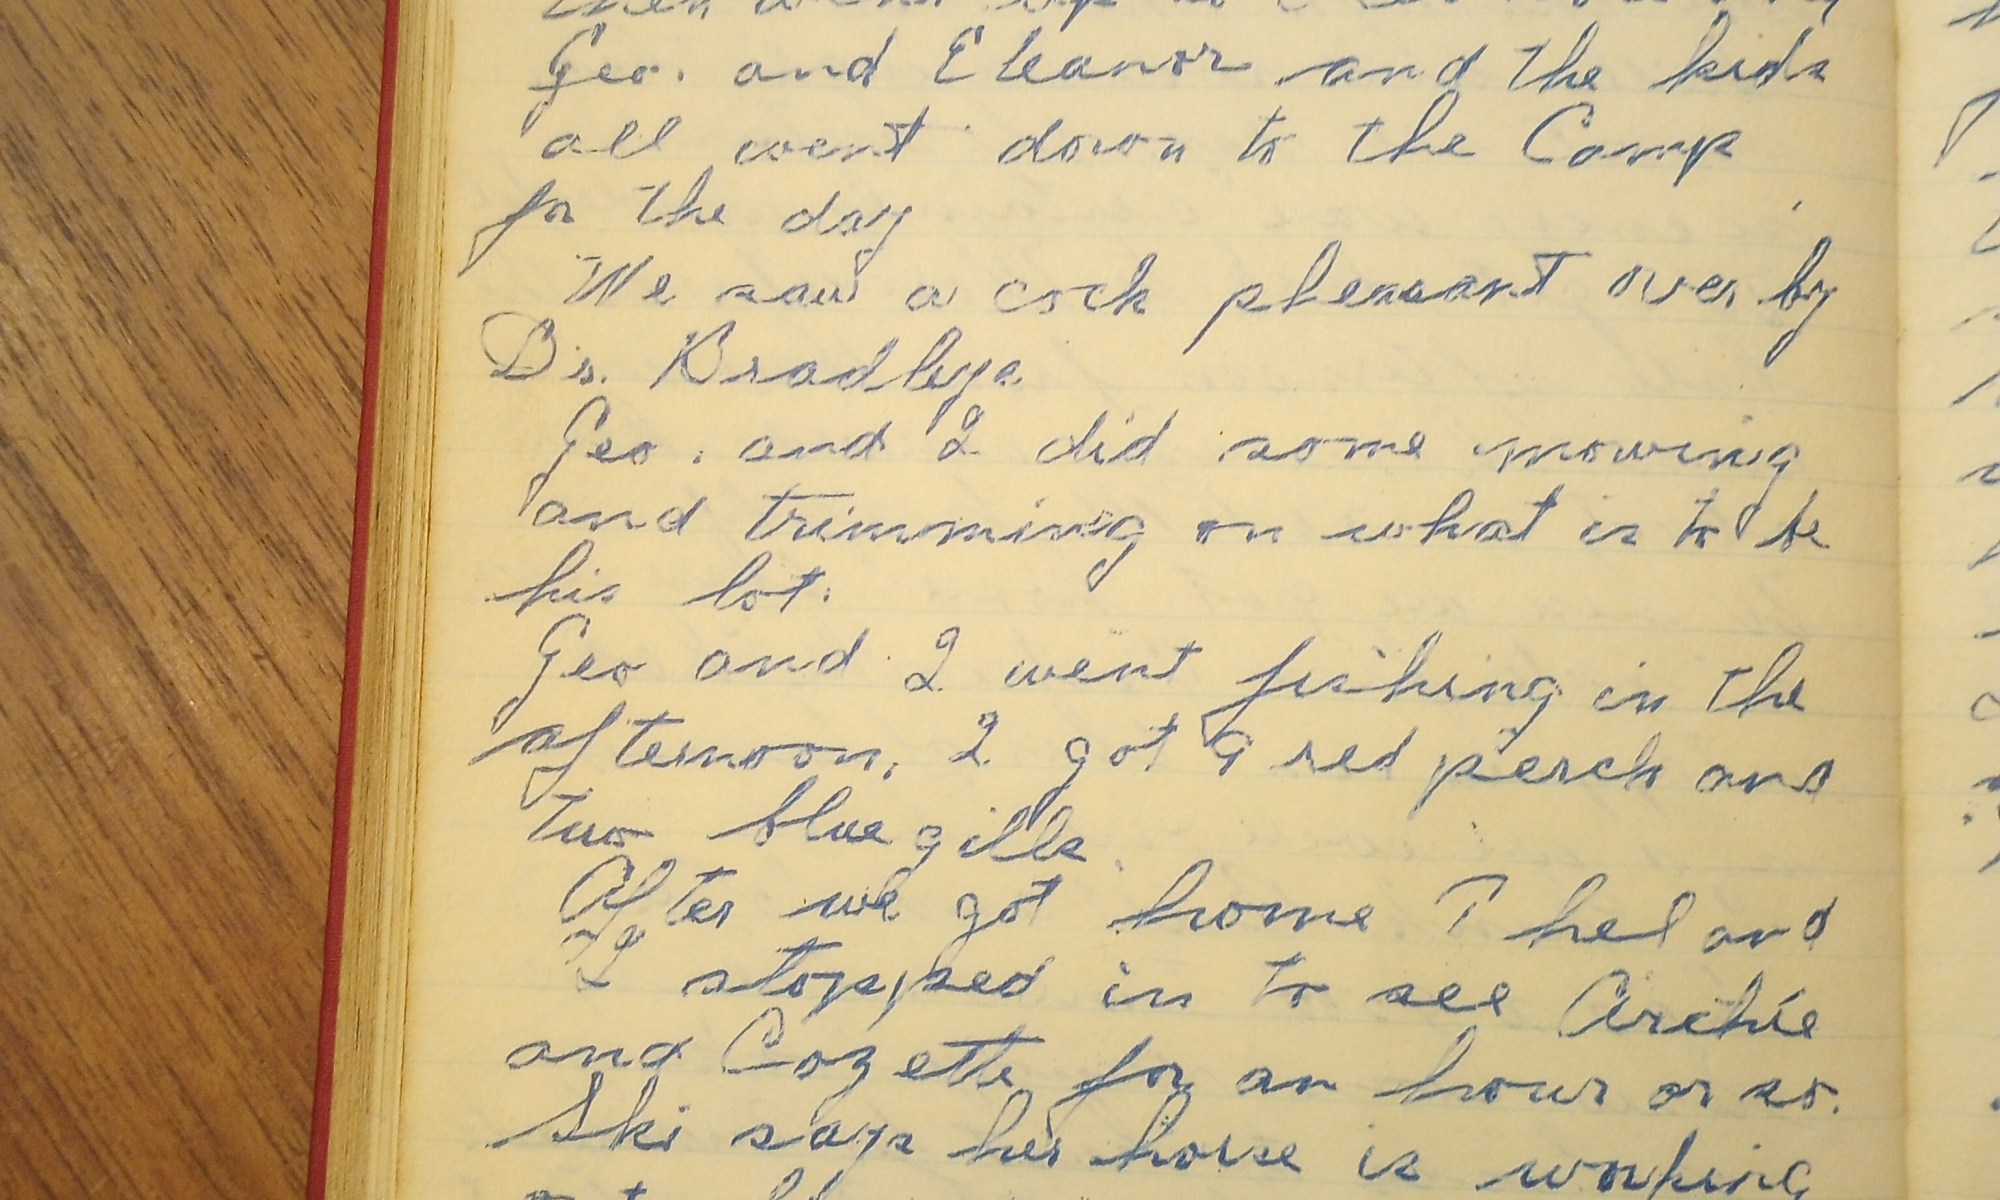 Geo. and Eleanor and the kids
all went down to the Camp
for the day
We saw a cock pheasant over by
Dr. Bradleys.
Geo. and I did some mowing
and trimming on what is to be
his lot.
Geo and I went fishing in the
afternoon. I got 9 red perch and
two blue gills.
After we got home Thel and
I stopped in to see Archie
and Cozette for an hour or so.
Ski says her horse is working